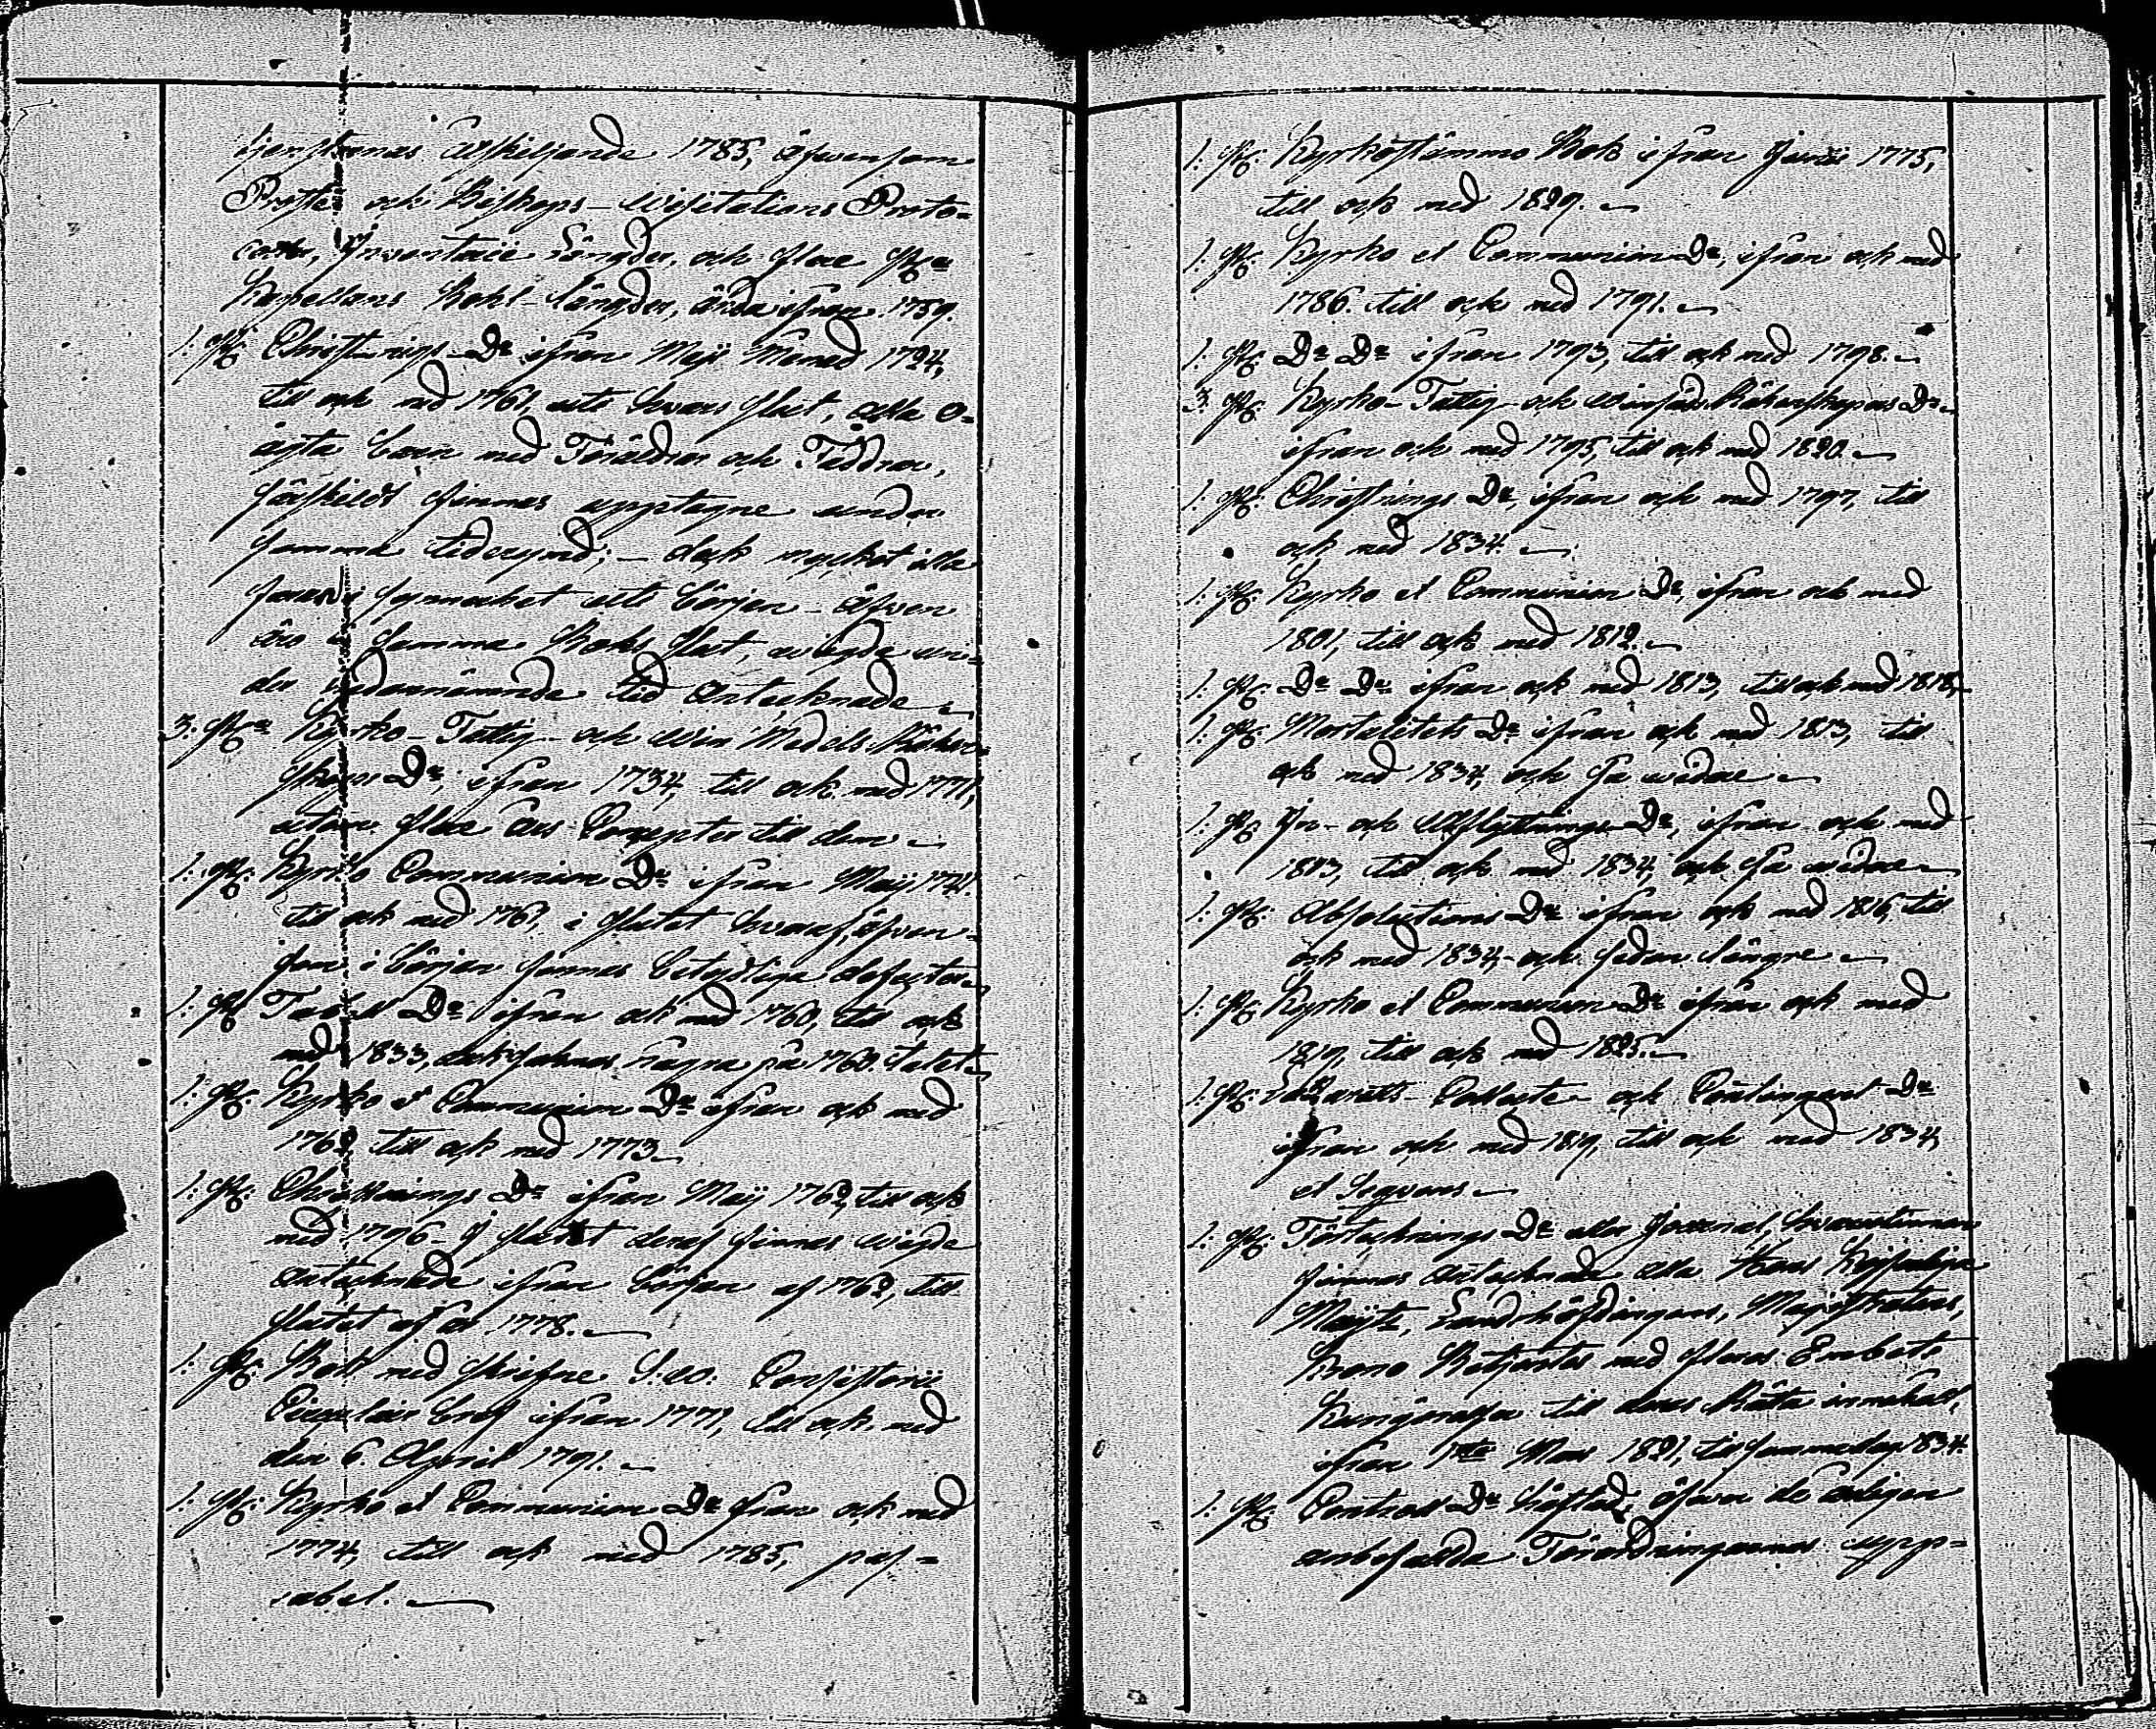 tjensternas Afskiljande 1785, äfvensom
Prosts och Biskops-Visitations Proto-
coller, Inventarii Längder, och flere St:n
Kapellans Bohl-Längder, ända ifrån 1759.
1. St: Christnings-D:o ifrån Maji Månad 1724,
till och med 1761, uti hvars slut, alla o-
ägta barn med Föräldrar och Faddrar,
särskildt finnas upptagne under
samma tiderymd; - dock mycket illa
i synnerhet uti början - Äfven
äro i samma Boks slut, wigde un-
der sedannämnde tid antecknade.
3. St:n Kyrko-Fattig- och Win Medels Räken-
skaps D:o, ifrån 1734, till och med 1771,
utom flere års Concepter till dem.
1. St: Kyrko Communion D:o ifrån Maji 1741.
till och med 1761, i slutet hvaraf, äfven-
som i början finnes betydliga defecter.
1. St: Tabell D:o ifrån och med 1760, till och
med 1833, dock saknas några på 1760 talet.
1. St: Kyrko et Communion D:o ifrån och med
1762, till och med 1773.
1. St: Christnings D:o ifrån Maji 1762, till och
med 1796. I slutet deraf finnes wigde
antecknade ifrån början af 1762, till
slutet af år 1778.
1. St: Bok med skrifne Consistorii
Circulair bref ifrån 1771, till och med
den 6. April 1791.
1. St: Kyrko et Communion D:o ifrån och med
1774, till och med 1785, pas-
sabel.
1. St: Kyrkostämmo Bok ifrån 1775,
till och med 1829.
1. St: Kyrko et Communion D:o, ifrån och med
1786. till och med 1791.
1. St: D:o D:o ifrån 1793, till och med 1798.
3. St: Kyrko-Fattig- och Räkenskapers D:o
ifrån och med 1795, till och med 1820.
1. St: Christnings D:o, ifrån och med 1797, till
och med 1834.
1. St: Kyrko et Communion D:o, ifrån och med
1801, till och med 1812.
1. St: D:o D:o ifrån och med 1813, till och med 1818.
1. St: Mortalitets D:o ifrån och med 1813, till
och med 1834, och så widare.
1. St: In- och Utflyttnings D:o, ifrån och med
1813, till och med 1834, och så widare.
1. St: Absolutions D:o ifrån och med 1816, till
och med 1834, och sedan längre.
1. St: Kyrko et Communion D:o ifrån och med
1819, till och med 1825.
1. St: Lazaretts-Collecte- och Contingent D:o
ifrån och med 1819, till och med 1834,
et sequens.
1. St: Förtecknings D:o eller Journal, hvarutinnan
finnas antecknade alla Hans Kejserliga
Maj:ts, Landshöfdingens, Magistratens,
Krono Betjentes med fleres Embets
Kungörelser till deras Räta innehåll,
ifrån 1:sta Mars 1821, till samma dag 1834.
1. St: Controll D:o häftad, öfver de årligen
anbefallda Förordningarnas upp-